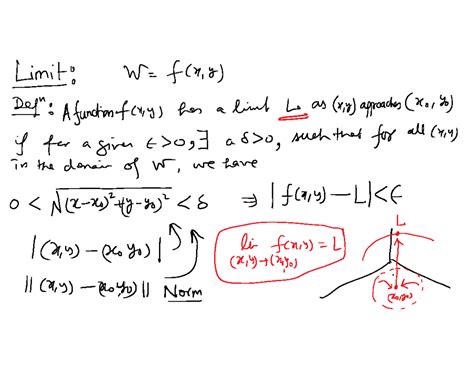 Limit: W = f(x,y)
Defⁿ: A function f(x,y) has a limit L as (x,y) approaches (x₀, y₀)
if for a given ϵ>0, ∃ a δ>0, such that for all (x,y)
in the domain of W, we have
0 < √((x-x₀)²+(y-y₀)²) < δ ⇒ |f(x,y) - L| < ϵ
|(x,y) - (x₀,y₀)|
||(x,y) - (x₀,y₀)|| Norm
lim f(x,y) = L
(x,y)→(x₀,y₀)
L
(x₀,y₀)